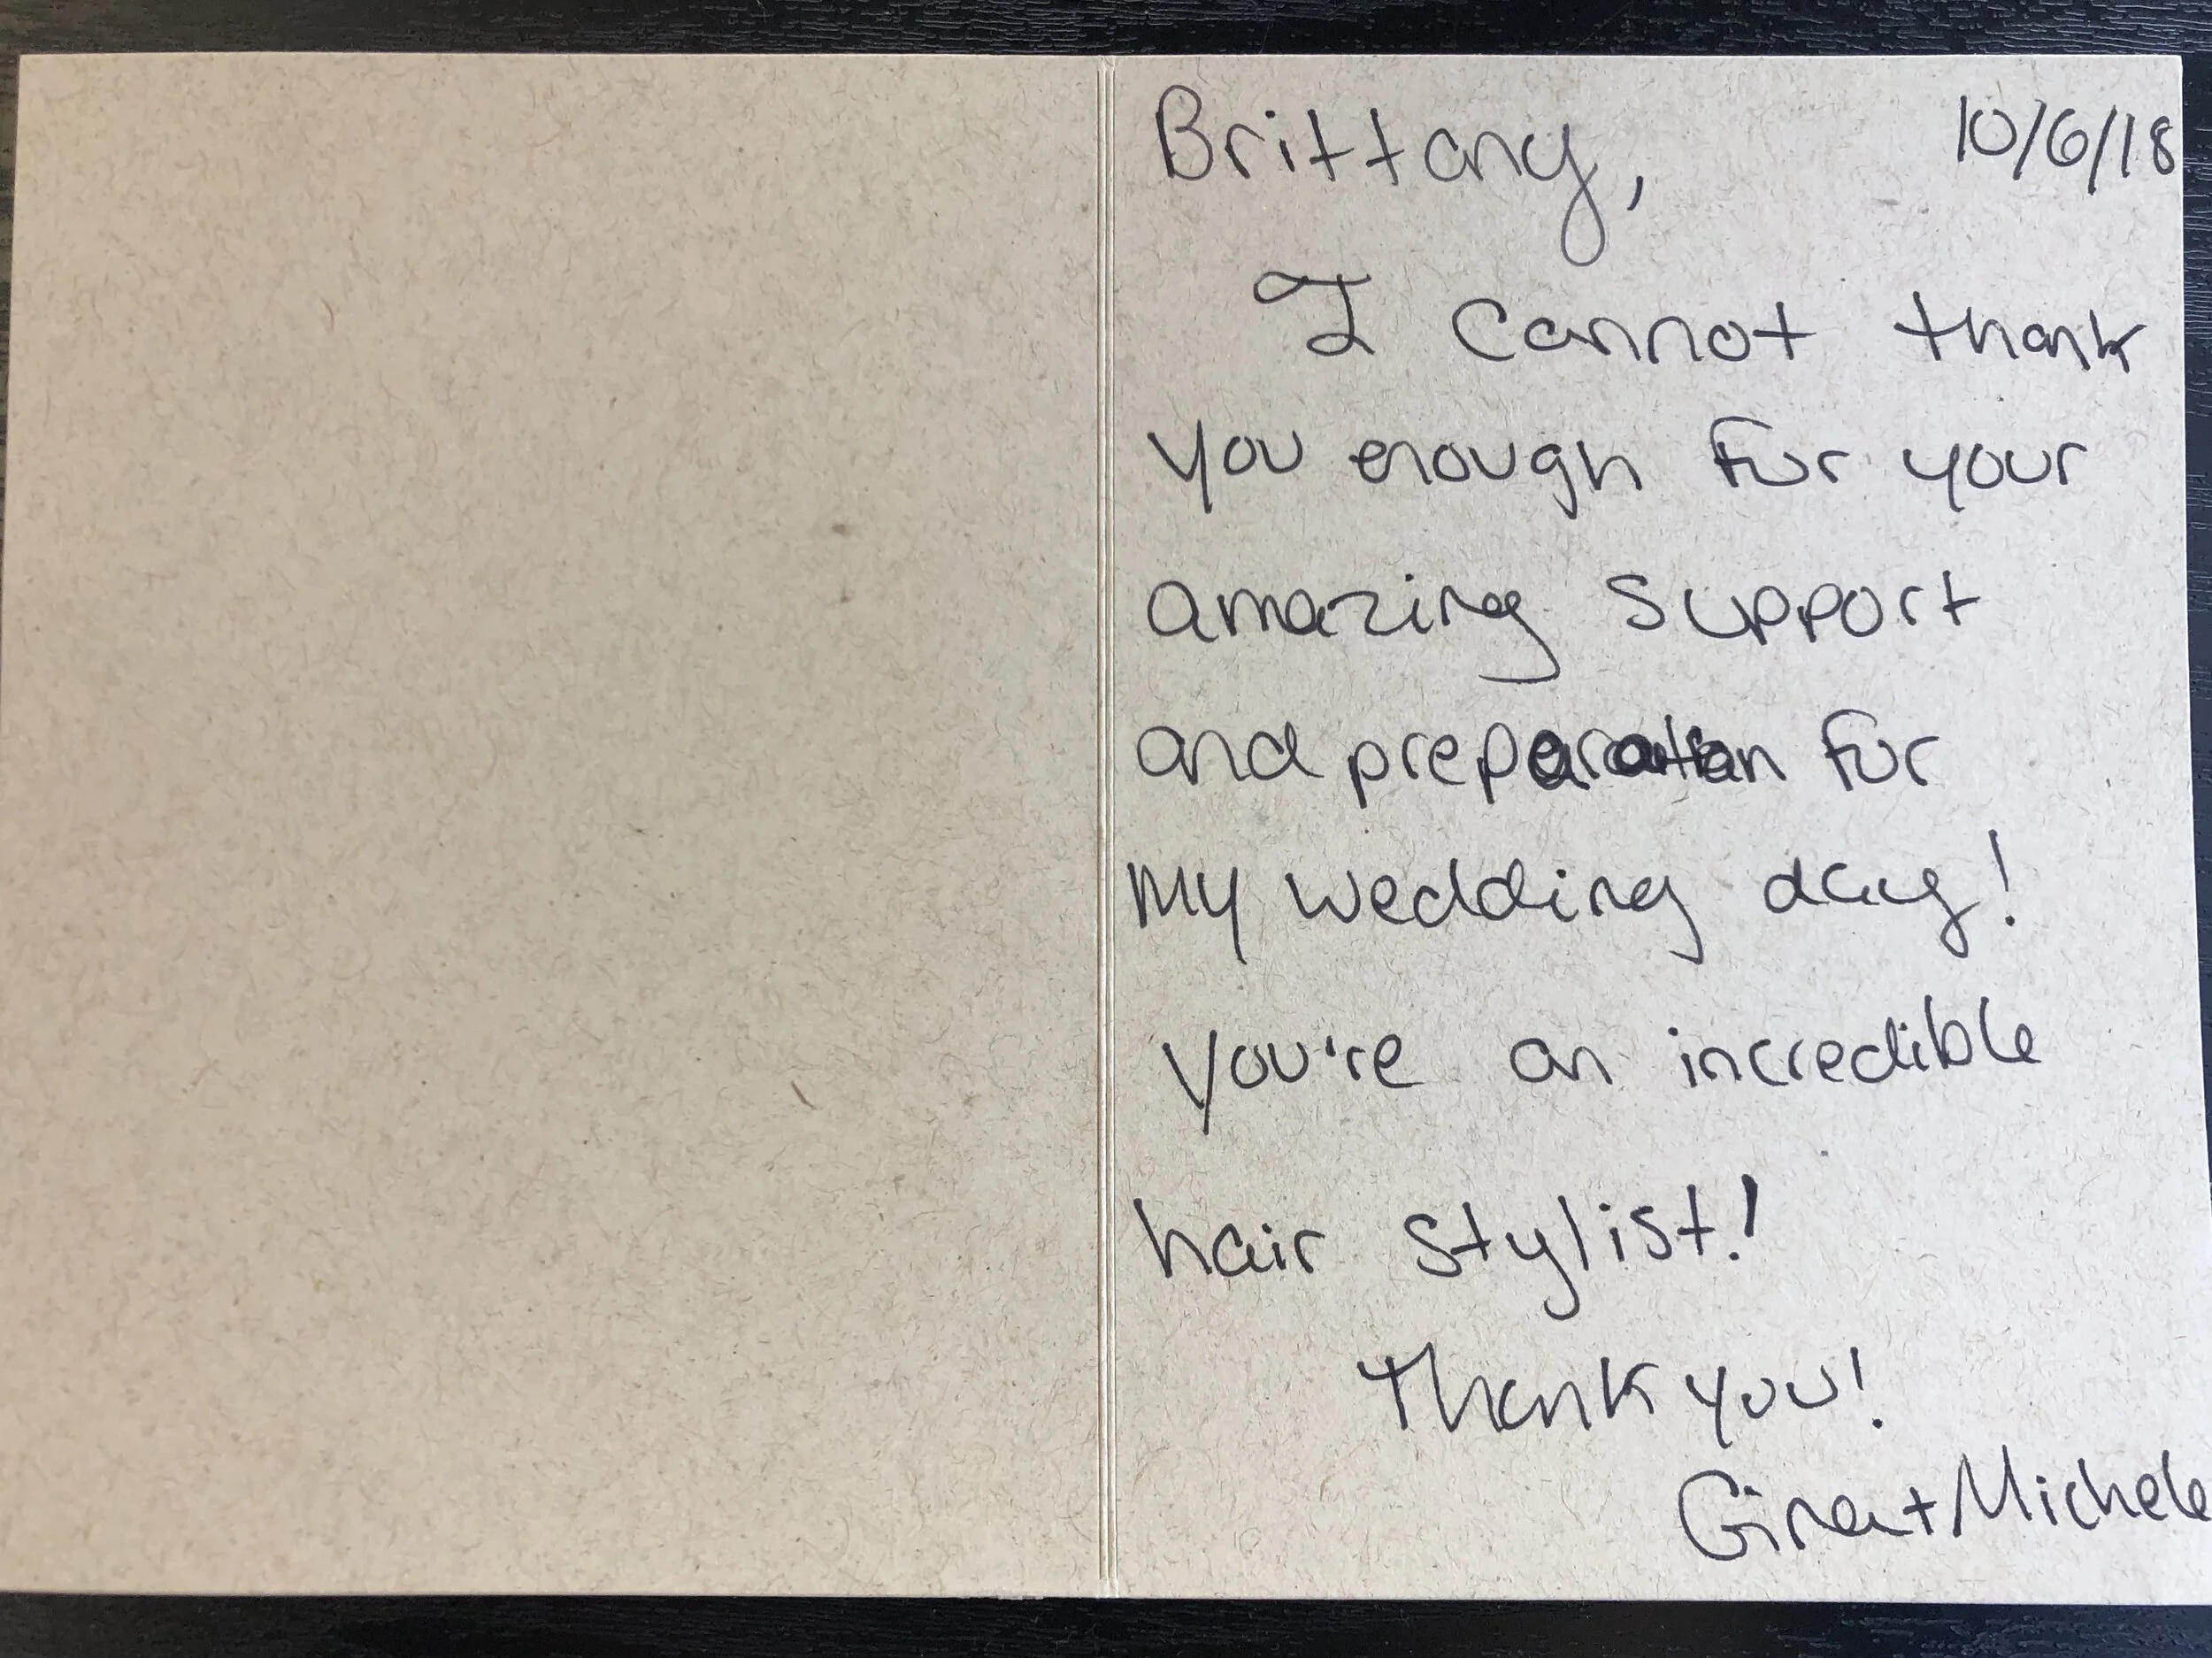 Brittany, 10/6/18
I cannot thank
you enough for your
amazing support
and preparation for
my wedding day!
You're an incredible
hair stylist!
Thank you!
Gina + Michele